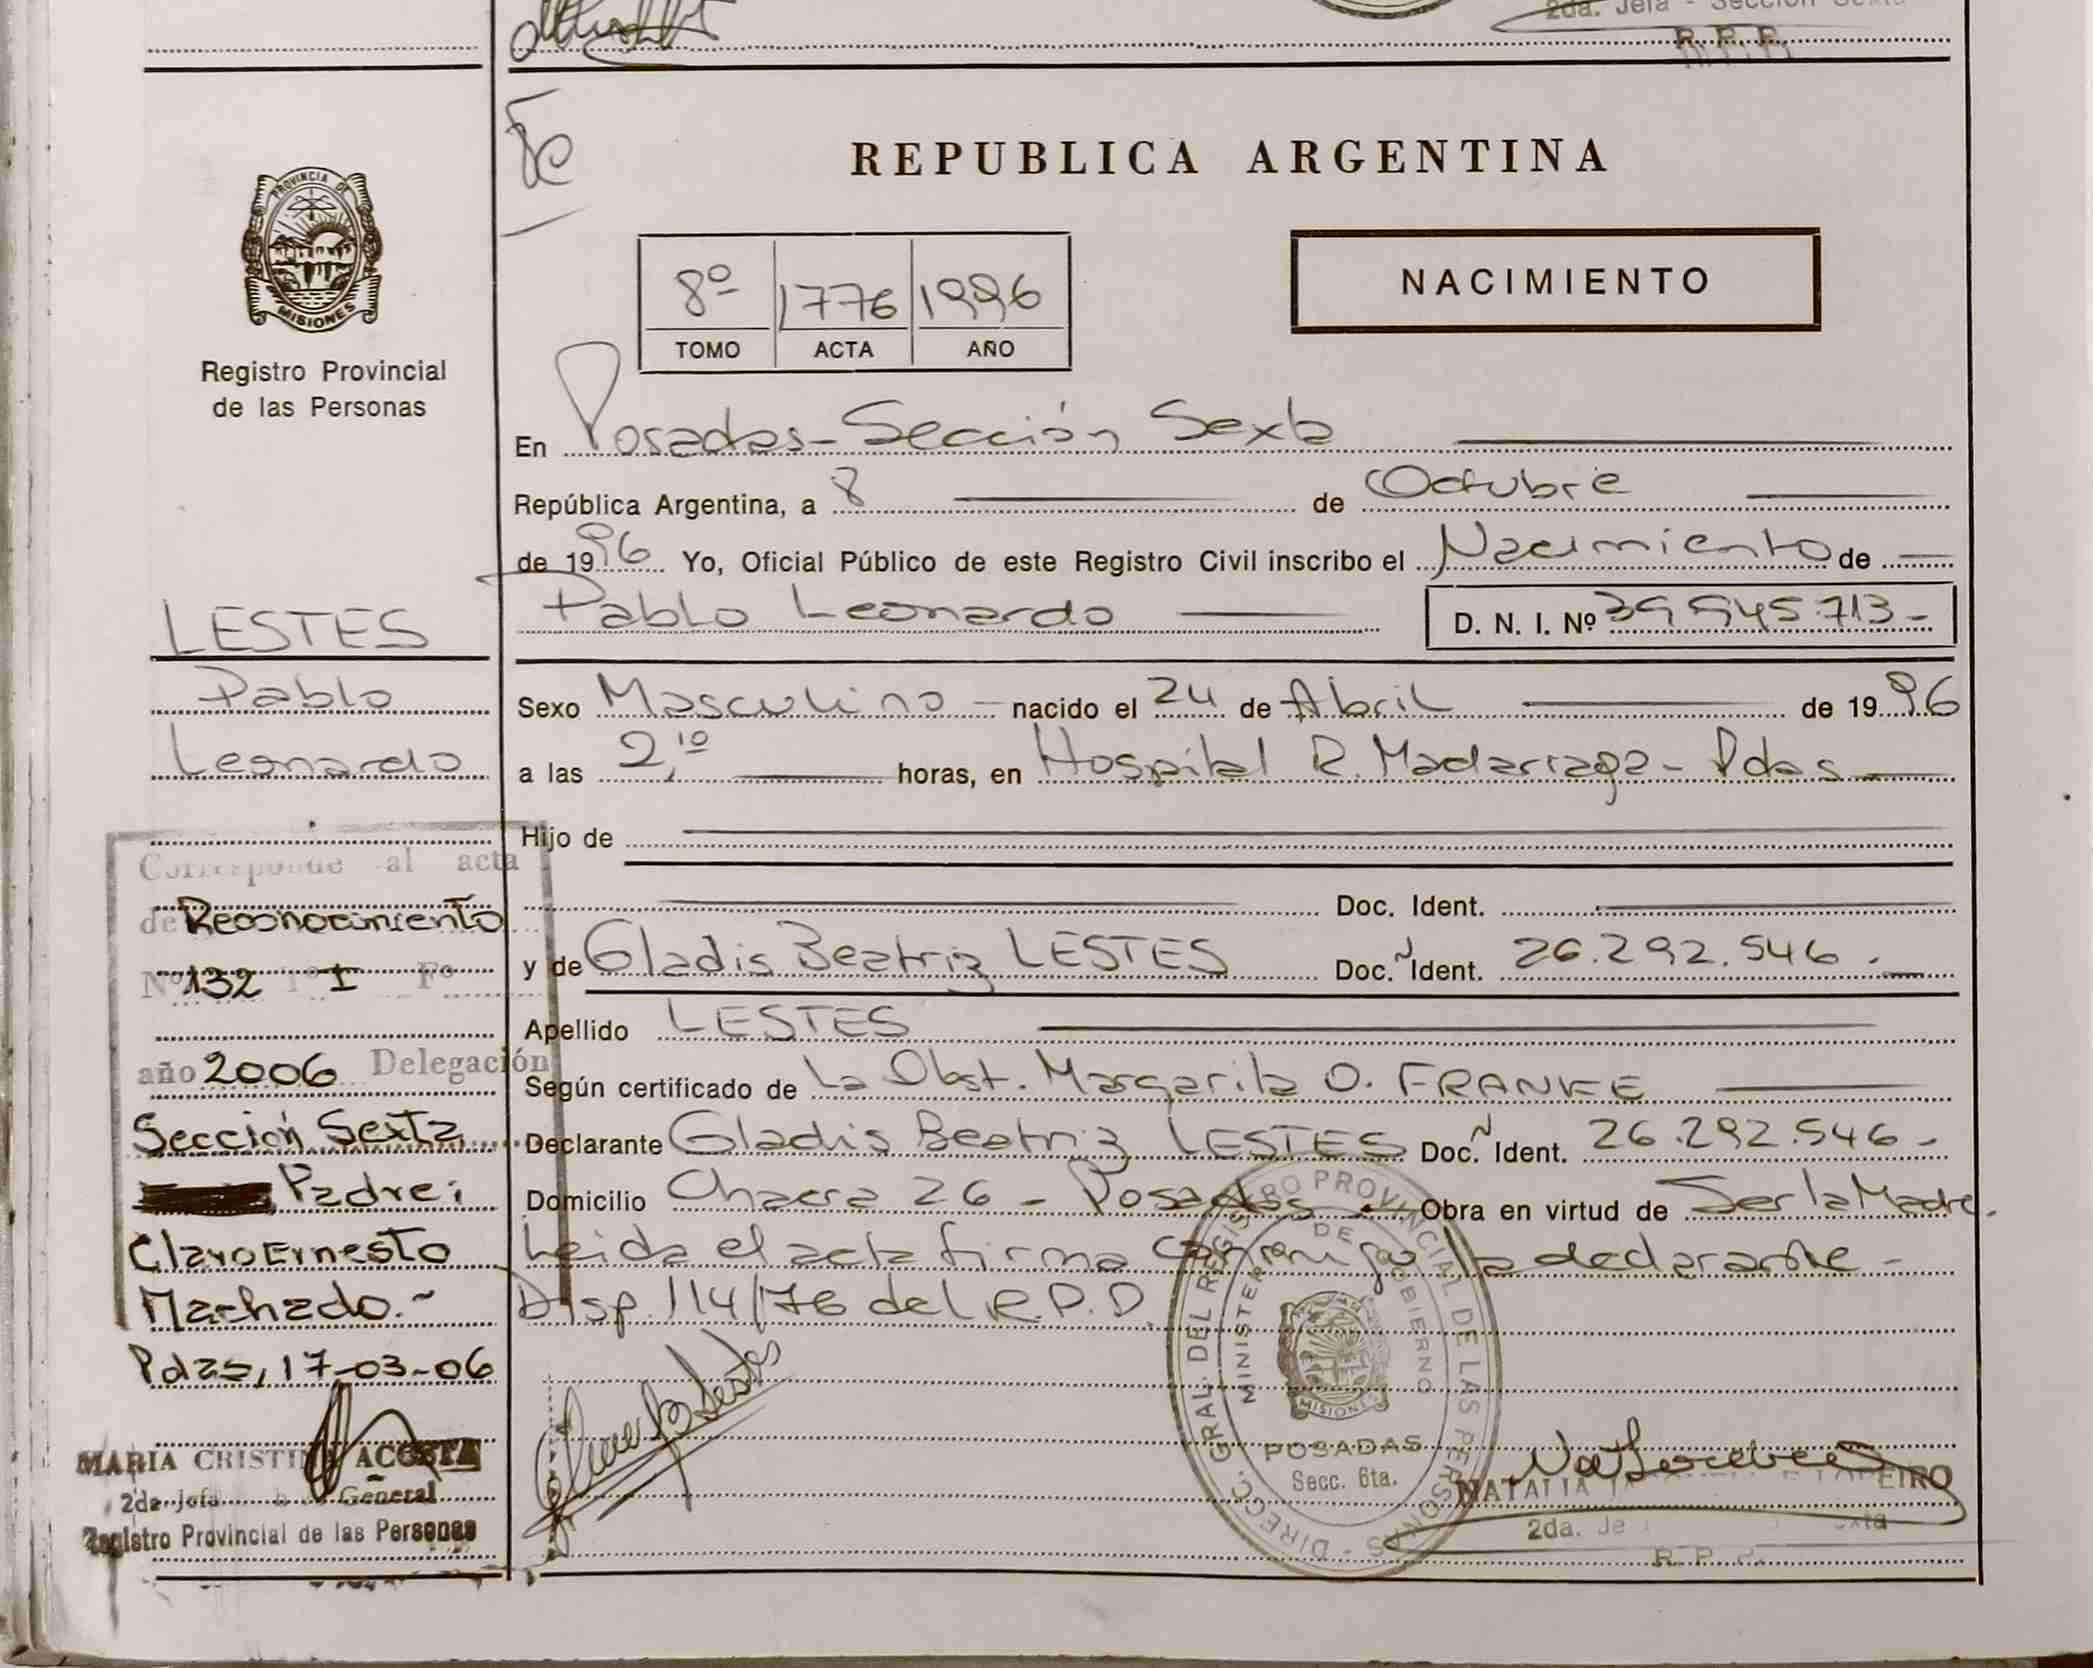 2da. Jefa - Sección Sexta
R. P. P.
PROVINCIA DE
MISIONES
Registro Provincial
de las Personas
LESTES
Pablo
Leonardo
Corresponde al acta
de Reconocimiento
Nº 132 Tº I Fº
año 2006 Delegación
Sección Sexta
Padre:
Claro Ernesto
Machado.-
Pdas, 17-03-06
MARIA CRISTINA ACOSTA
2da Jefa General
Registro Provincial de las Personas
REPUBLICA ARGENTINA
NACIMIENTO
8º 1776 1996
TOMO ACTA AÑO
En Posadas-Sección Sexta
República Argentina, a 8 de Octubre
de 1996 Yo, Oficial Público de este Registro Civil inscribo el Nacimiento de
Pablo Leonardo D. N. I. Nº 39.945.713-
Sexo Masculino - nacido el 24 de Abril de 1996
a las 2,10 horas, en Hospital R. Madariaga - Pdas
Hijo de
Doc. Ident.
y de Gladis Beatriz LESTES Doc. Ident. 26.292.546.
Apellido LESTES
Según certificado de La Obst. Margarita O. FRANKE
Declarante Gladis Beatriz LESTES Doc. Ident. 26.292.546-
Domicilio Chacra 26 - Posadas. Obra en virtud de Ser la Madre.
Leida el acta firma conmigo la declarante-
Disp. 114/76 del R.P.P.
DIRECC. GRAL. DEL REGISTRO PROVINCIAL DE LAS PERSONAS
MINISTERIO DE GOBIERNO
MISIONES
POSADAS
Secc. 6ta.
NATALIA
2da. Je
R. P. P.